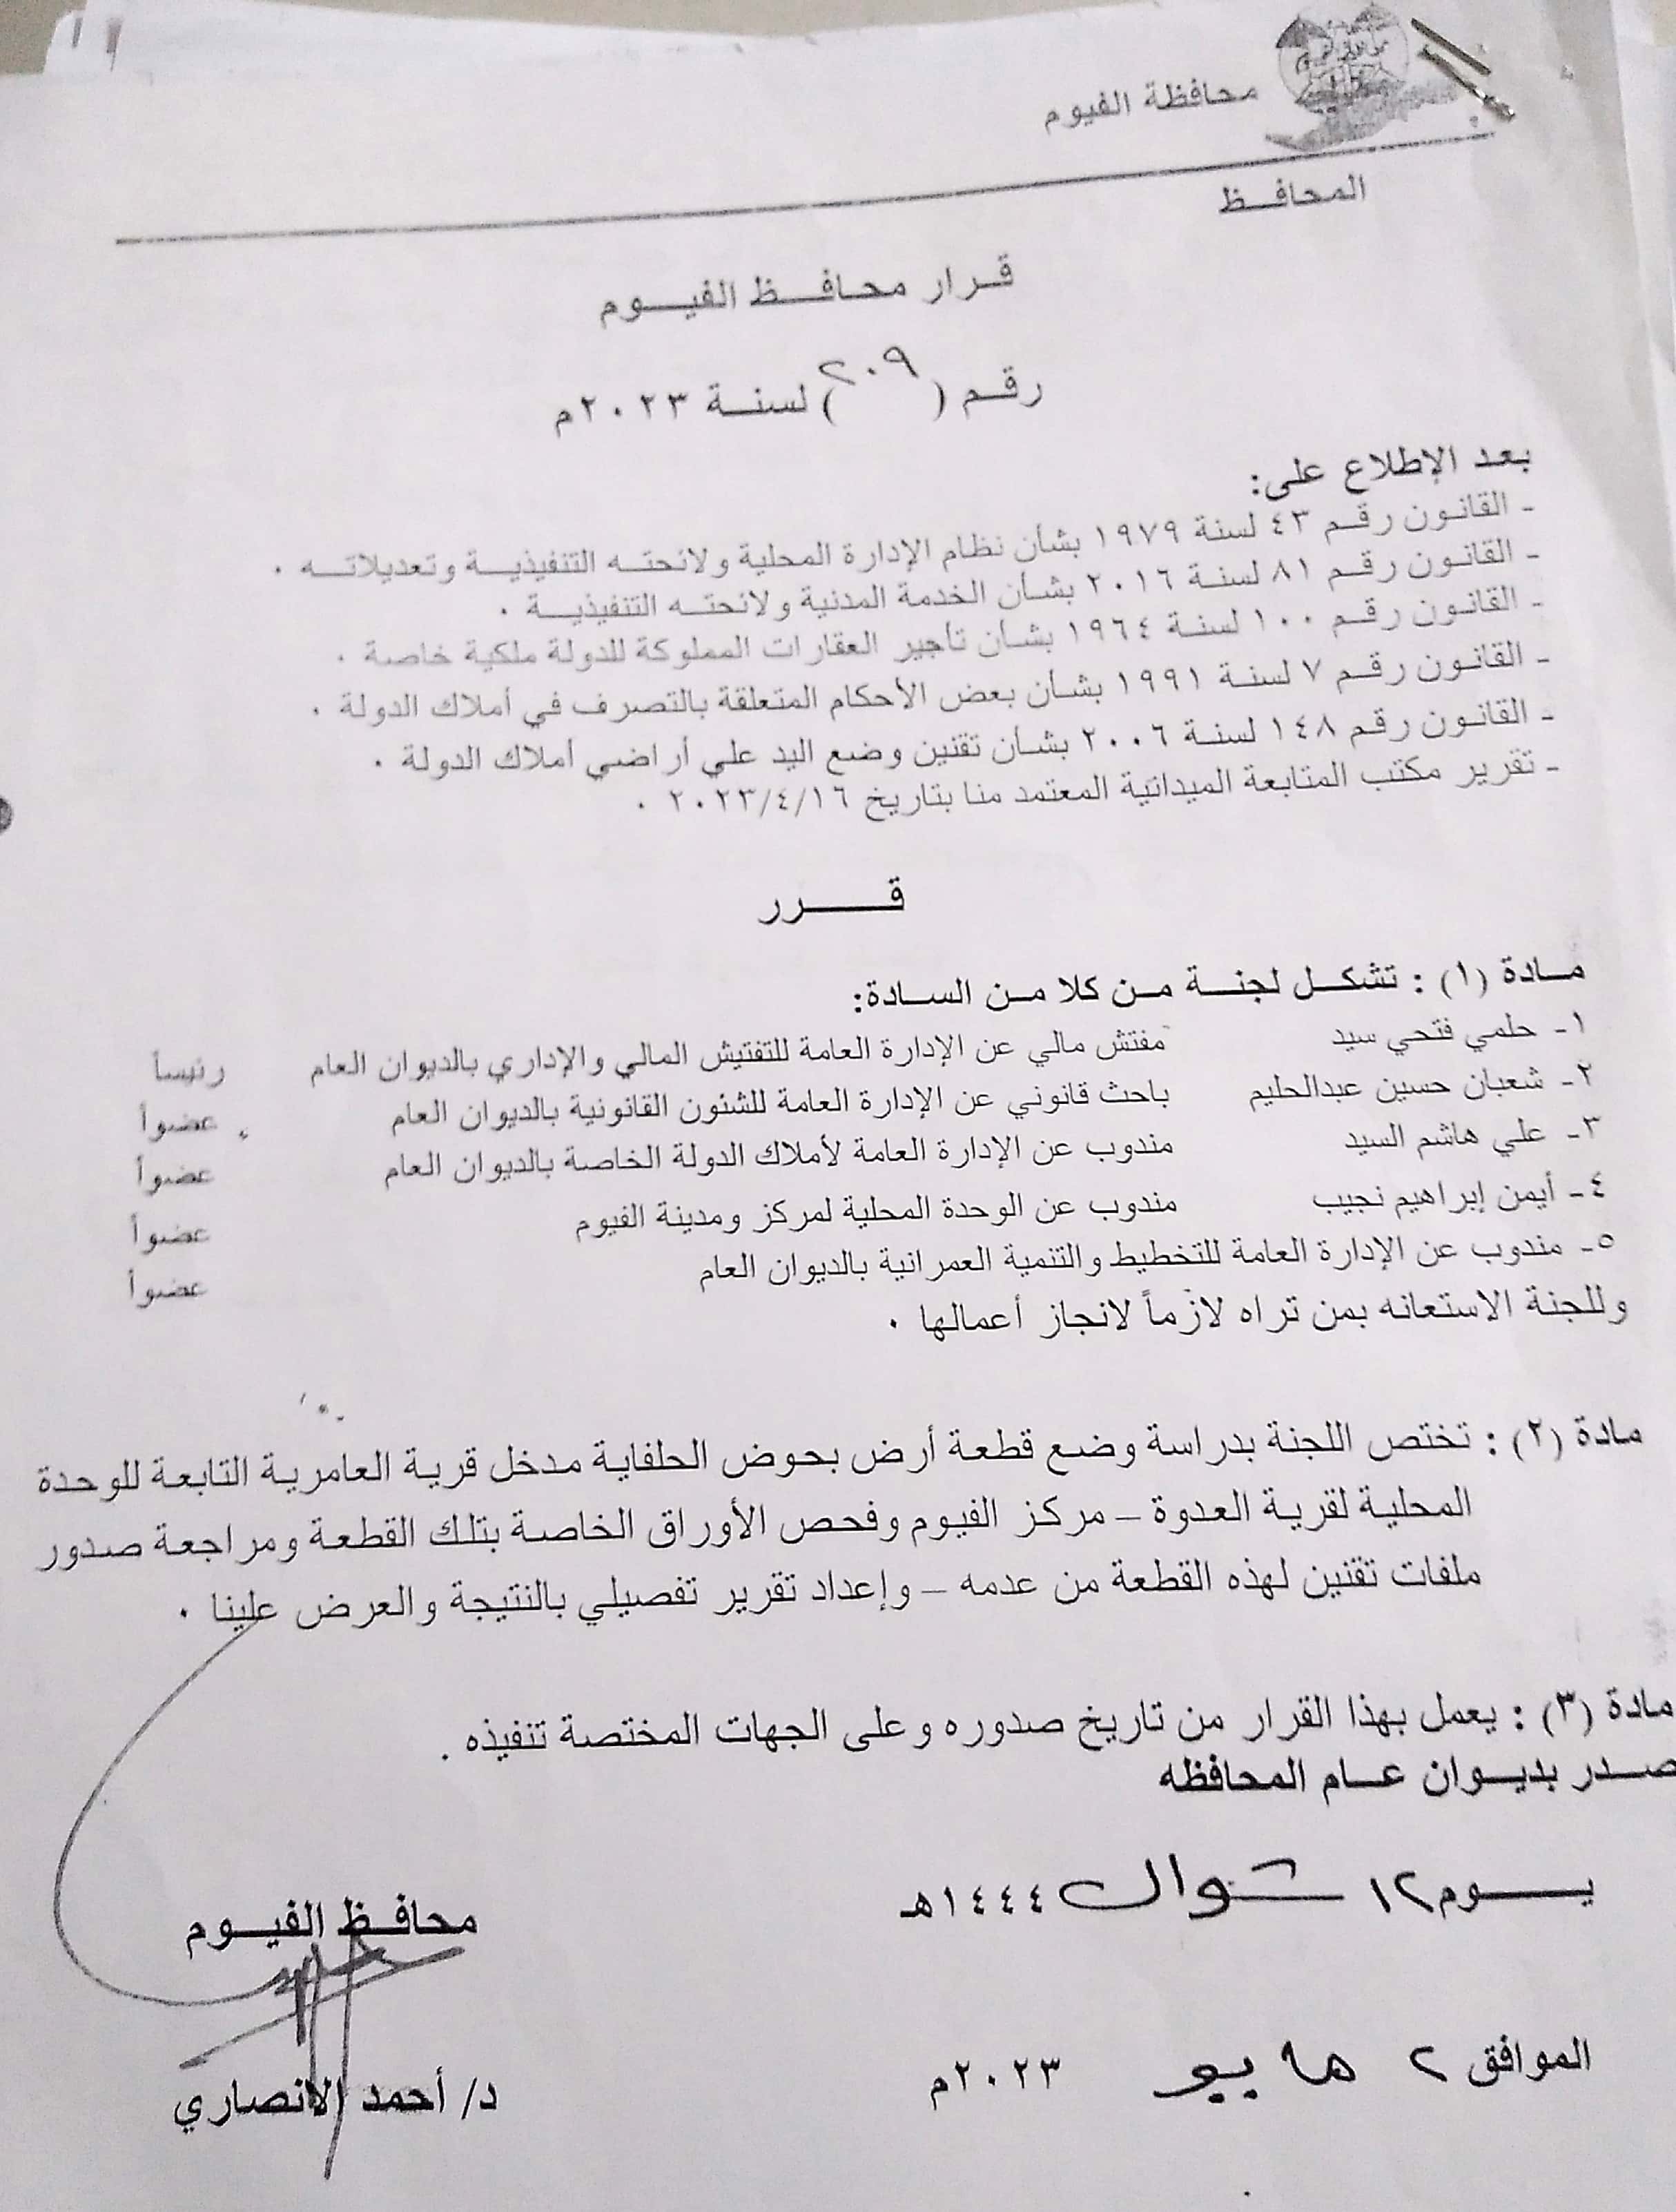 محافظة الفيوم
المحافـــظ
قـرار محـافـــظ الفيـــوم
رقـم (٢٠٩) لسنـة ٢٠٢٣م
بعـد الإطلاع على:
- القانـون رقـم ٤٣ لسنة ١٩٧٩ بشأن نظام الإدارة المحلية ولائحتـه التنفيذيـــة وتعديلاتـــه ٠
- القانـون رقـم ٨١ لسنـة ٢٠١٦ بشـأن الخدمة المدنية ولائحتـه التنفيذيــة ٠
- القانـون رقـم ١٠٠ لسنـة ١٩٦٤ بشـأن تأجير العقارات المملوكة للدولة ملكية خاصة ٠
- القانـون رقـم ٧ لسنـة ١٩٩١ بشـأن بعض الأحكام المتعلقة بالتصرف في أملاك الدولة ٠
- القانـون رقـم ١٤٨ لسنـة ٢٠٠٦ بشـأن تقنين وضع اليد علي أراضي أملاك الدولة ٠
- تقرير مكتب المتابعة الميدانية المعتمد منا بتاريخ ٢٠٢٣/٤/١٦ ٠
قــــــرر
مـادة (١) : تشكـــل لجنـــة مـن كلا مـن الســادة:
١- حلمي فتحي سيد مفتش مالي عن الإدارة العامة للتفتيش المالي والإداري بالديوان العام رئيساً
٢- شعبان حسين عبدالحليم باحث قانوني عن الإدارة العامة للشئون القانونية بالديوان العام عضواً
٣- علي هاشم السيد مندوب عن الإدارة العامة لأملاك الدولة الخاصة بالديوان العام عضواً
٤- أيمن إبراهيم نجيب مندوب عن الوحدة المحلية لمركز ومدينة الفيوم عضواً
٥- مندوب عن الإدارة العامة للتخطيط والتنمية العمرانية بالديوان العام عضواً
وللجنة الاستعانه بمن تراه لازماً لانجاز أعمالها ٠
مادة (٢) : تختص اللجنة بدراسة وضع قطعة أرض بحوض الحلفاية مدخل قرية العامرية التابعة للوحدة
المحلية لقرية العدوة – مركز الفيوم وفحص الأوراق الخاصة بتلك القطعة ومراجعة صدور
ملفات تقنين لهذه القطعة من عدمه – وإعداد تقرير تفصيلي بالنتيجة والعرض علينا ٠
مادة (٣) : يعمل بهذا القرار من تاريخ صدوره وعلى الجهات المختصة تنفيذه .
صـــدر بديـــوان عـــام المحافظه
يـــــوم ١٢ شوال ١٤٤٤هـ
الموافق ٢ مايو ٢٠٢٣م
محافـظ الفيـــوم
د/ أحمد الانصاري